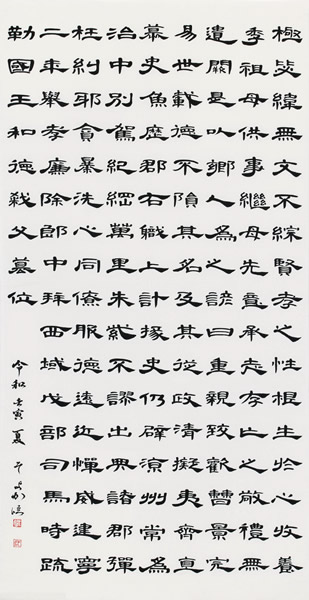 極毖緯無文不綜賢孝之性根生於心收養
季祖母供事繼母先意承志存亡之敬禮無
遺闕是以鄉人為之諺曰重親致歡曹景完
易世載德不隕其名及其從政清擬夷齊直
慕史魚歷郡右職上計掾史仍辟涼州常為
治中別駕紀綱萬里朱紫不謬出典諸郡彈
枉糾邪貪暴洗心同僚服德遠近憚威建寧
二年舉孝廉除郎中拜西域戊部司馬時疏
勒國王和德弒父篡位
令和壬寅夏